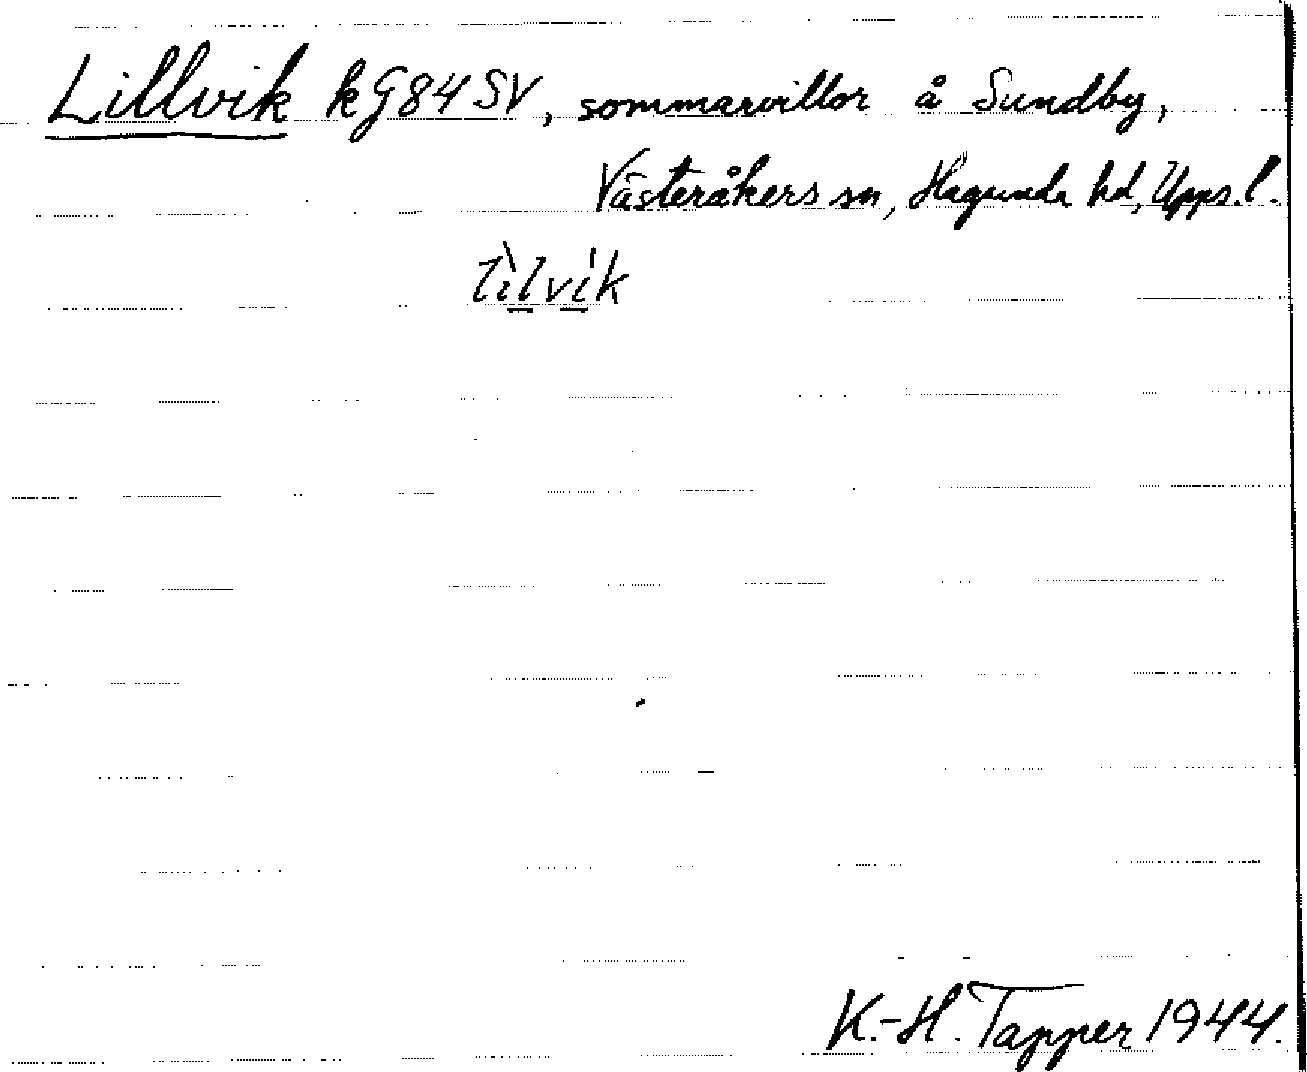 Lillvik kG84SV, sommarvillor å Sundby,
Västeråkers sn, Hagunda hd, Upps.l.
lìlvík
K.-H. Tapper 1944.